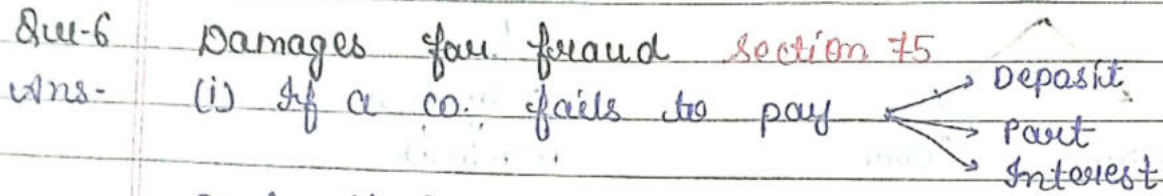 Que-6 Damages for fraud section 75
Ans- (i) If a co. fails to pay → Deposit
→ Part
→ Interest